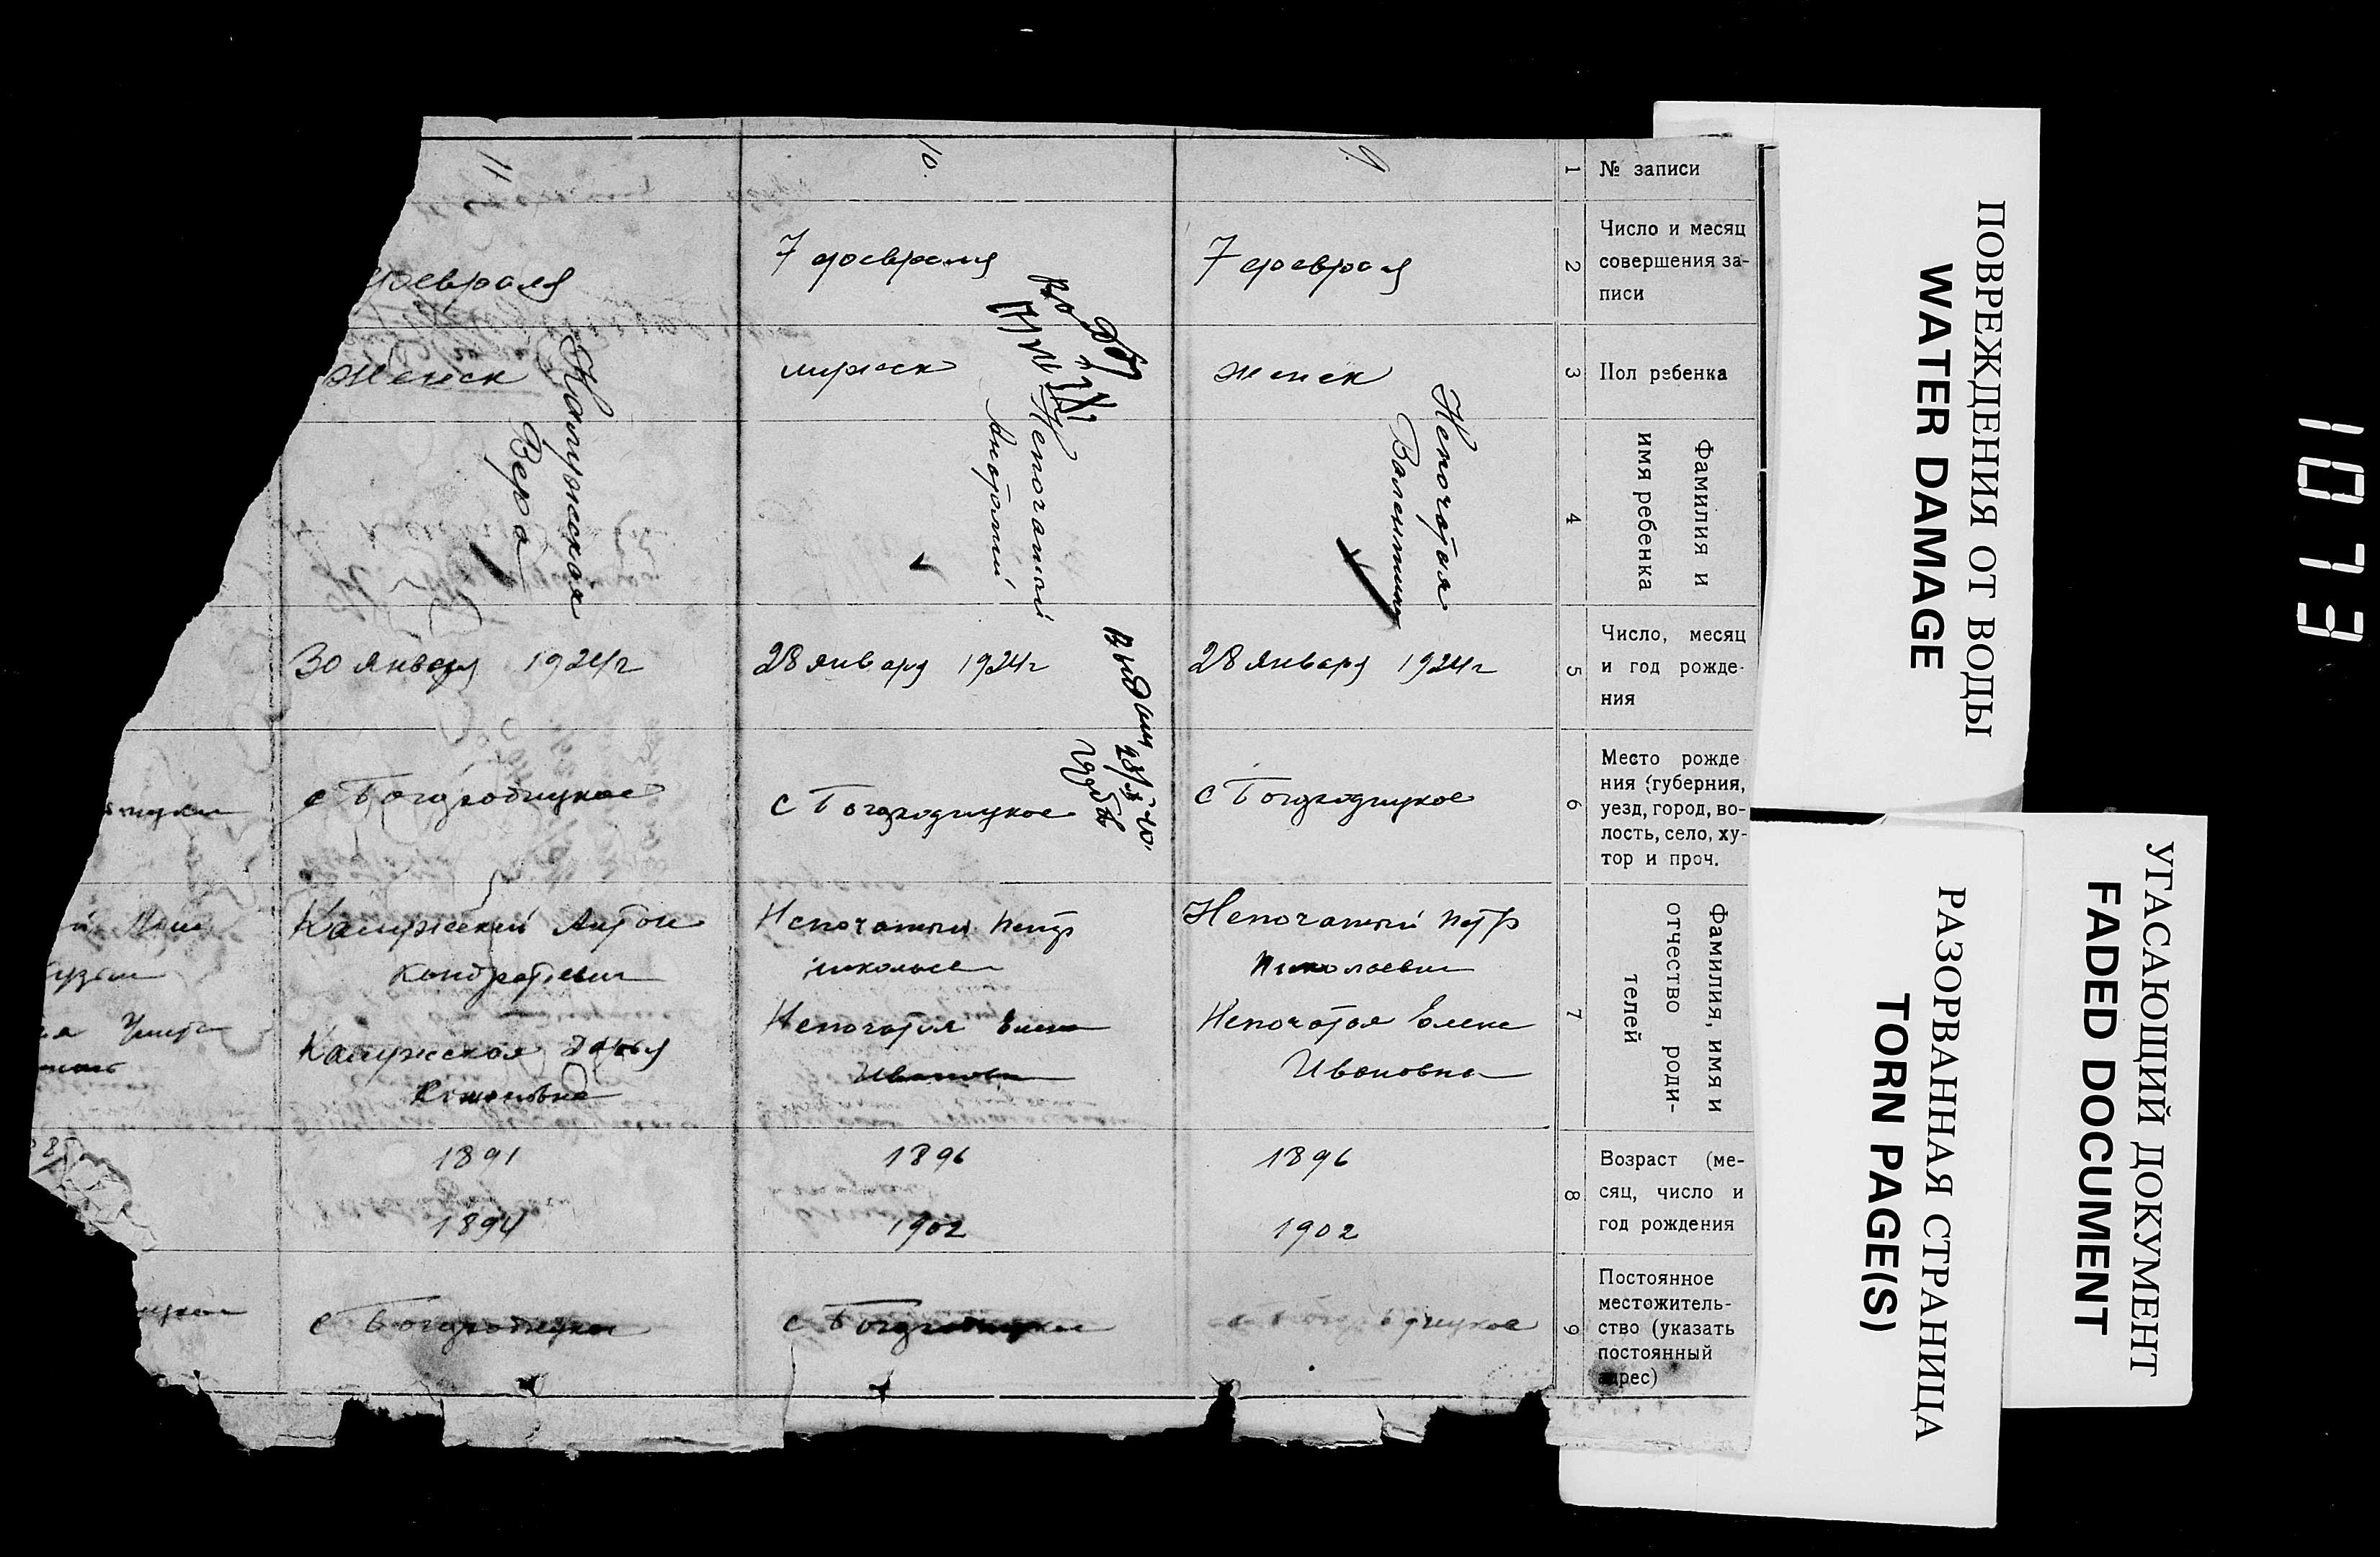 № записи
1
9.
10.
11
Число и месяц
совершения за-
писи
2
7 февраля
7 февраля
февраля
Пол ребенка
3
женск
мужск
женск
Фамилия и
имя ребенка
4
Непочатая
Валентина
Непочатый
Анатолий
Калужская
Вера
Число, месяц
и год рожде-
ния
5
28 января 1924 г
28 января 1924 г
30 января 1924 г
Место рожде
ния (губерния,
уезд, город, во-
лость, село, ху-
тор и проч.
6
с Богородицкое
с Богородицкое
с Богородицкое
Фамилия, имя и
отчество роди-
телей
7
Непочатый Петр
Николаевич
Непочатая Елена
Ивановна
Непочатый Петр
Непочатая Елена
Ивановна
Калужский Антон
Кондратьевич
Калужская Дарья
Возраст (ме-
сяц, число и
год рождения
8
1896
1902
1896
1902
1891
1894
Постоянное
местожитель-
ство (указать
постоянный
адрес)
9
с Богородицкое
с Богородицкое
с Богородицкое
ПОВРЕЖДЕНИЯ ОТ ВОДЫ
WATER DAMAGE
УГАСАЮЩИЙ ДОКУМЕНТ
FADED DOCUMENT
РАЗОРВАННАЯ СТРАНИЦА
TORN PAGE(S)
1073